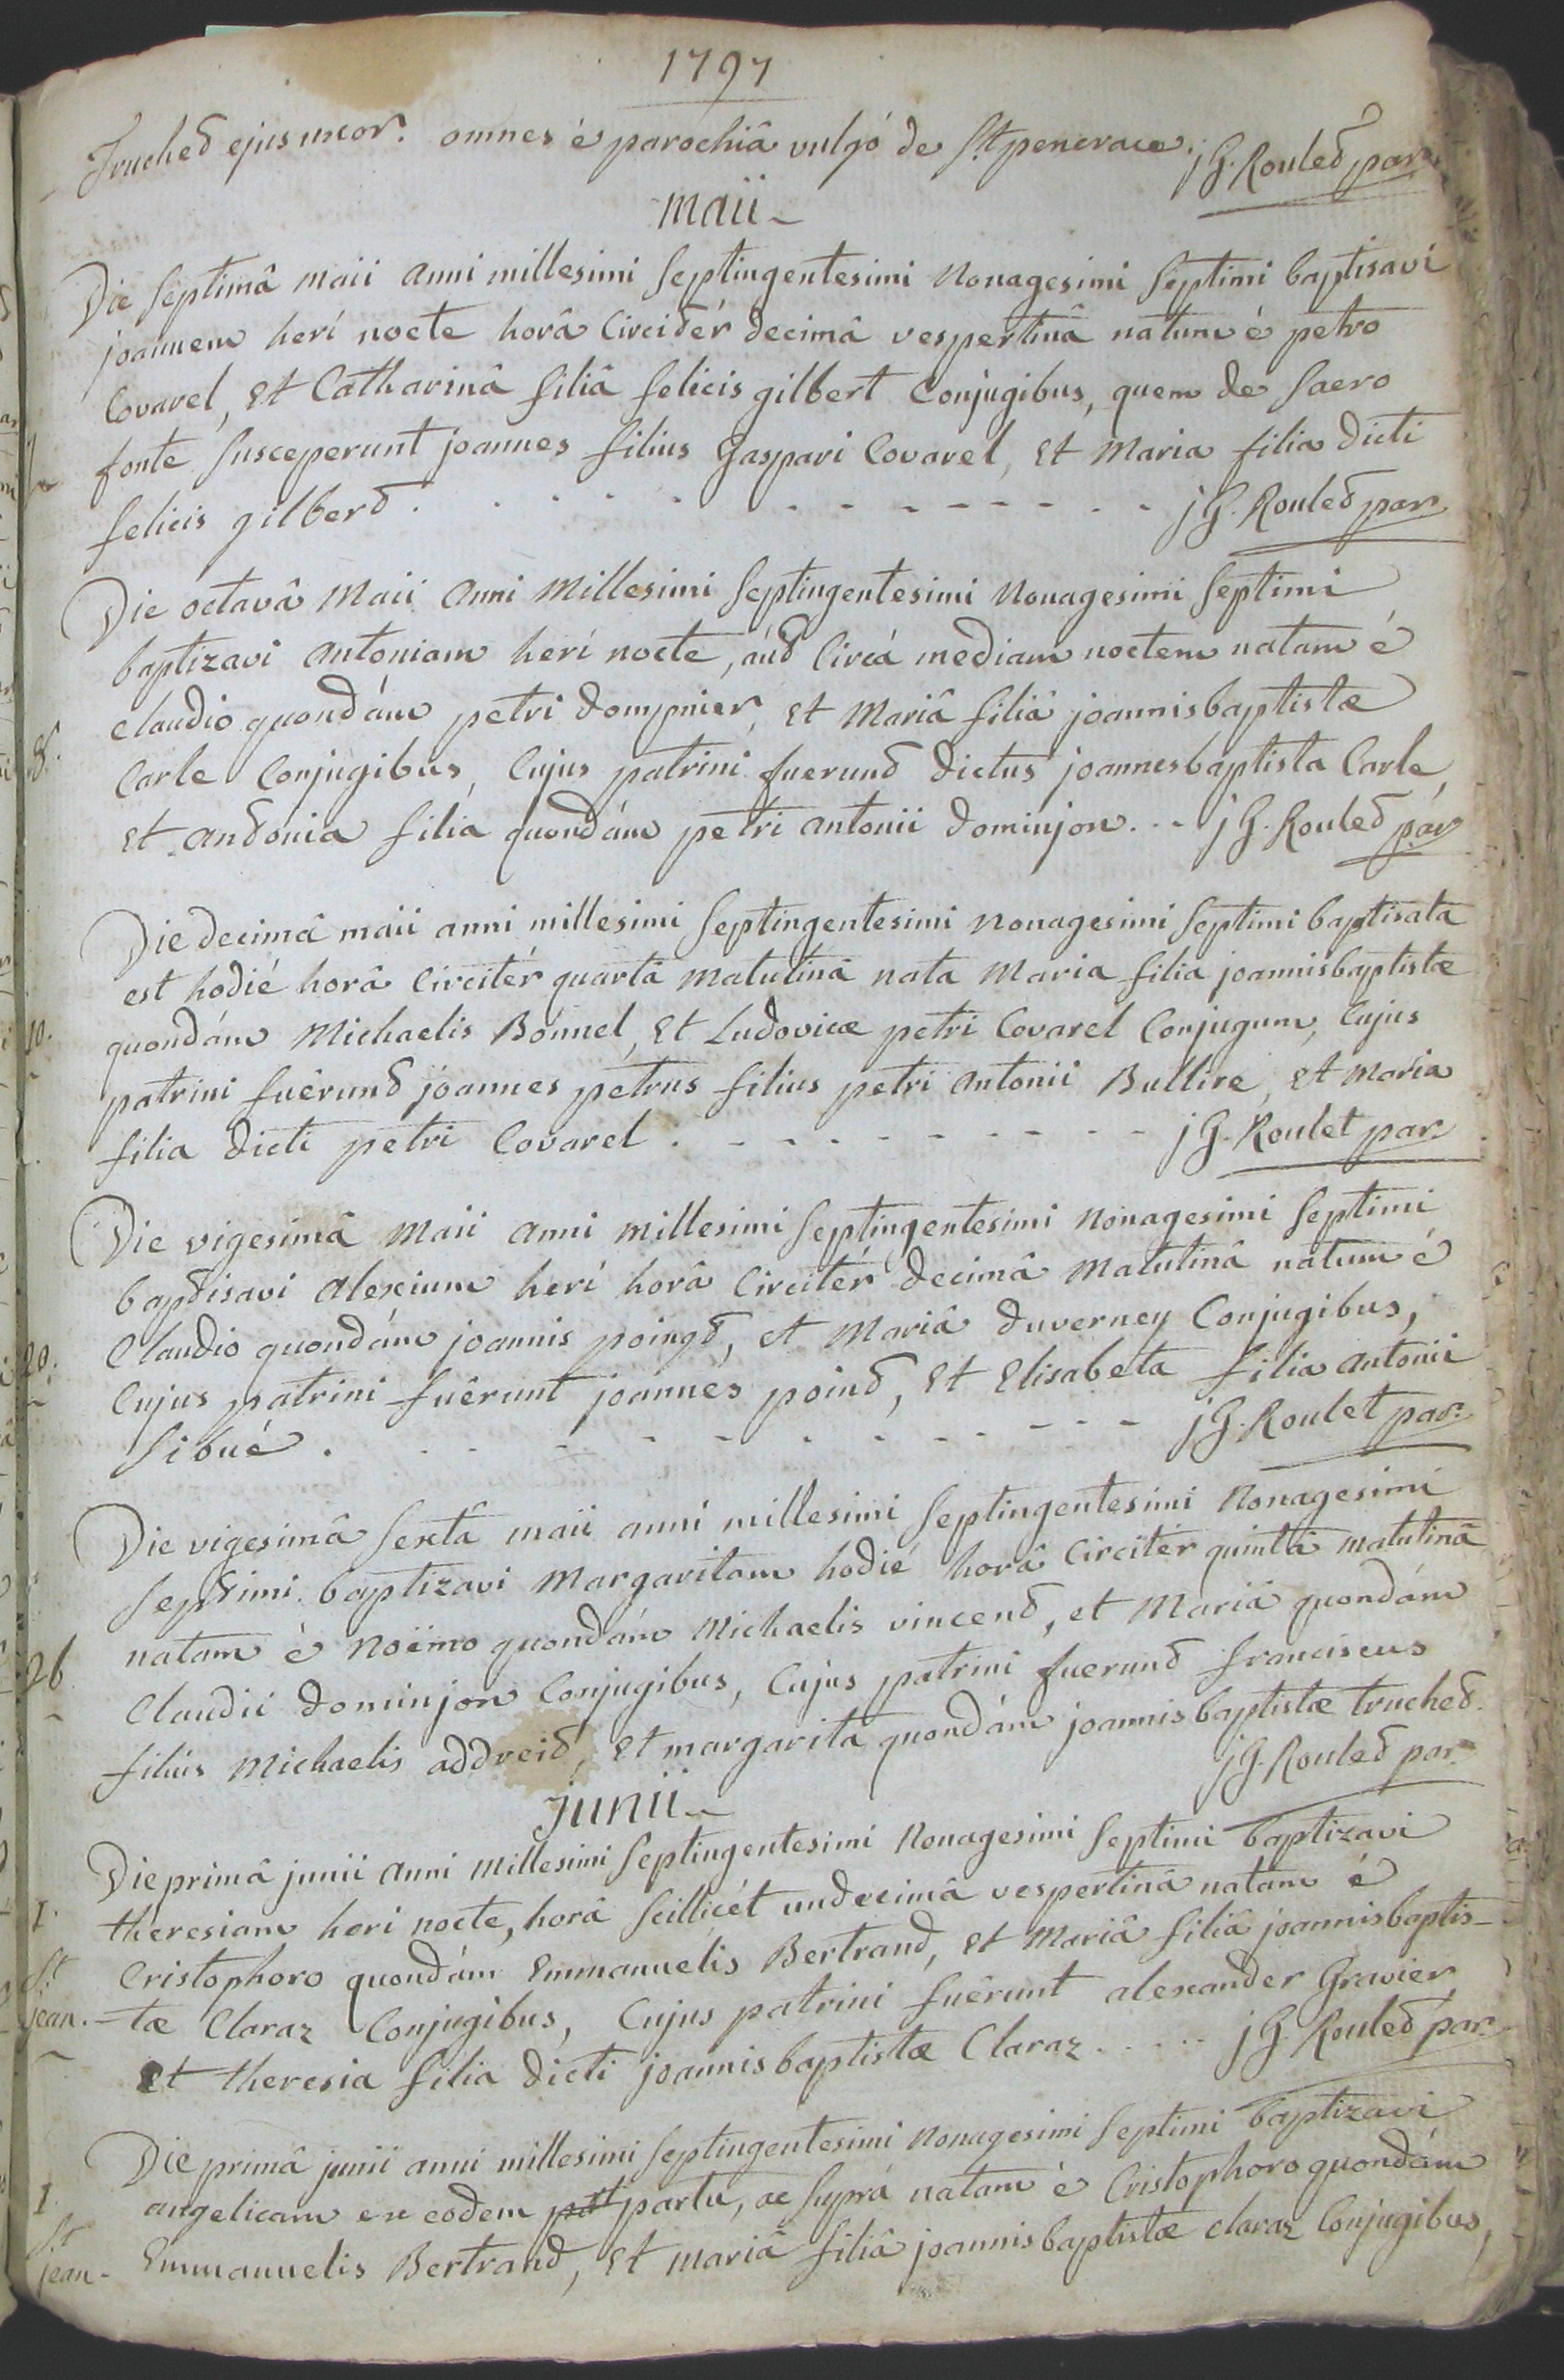 1797
Truchet ejus uxor. omnes è parochiâ vulgó de St penerace. jG. Roulet par.
maii
Die septimâ maii anni millesimi septingentesimi Nonagesimi septimi baptisavi
joannem herí nocte horâ circitér decimâ vespertinâ natum é petro
Covarel, et Catharinâ filiâ felicis gilbert Conjugibus, quem de sacro
fonte susceperunt joannes filius Gaspari Covarel, et Maria filia dicti
felicis gilbert. jG. Roulet par.
Die octavâ Maii anni Millesimi septingentesimi Nonagesimi septimi
8. baptizavi antoniam herí nocte, aut Circá mediam noctem natam é
claudio quondám petri dompnier, et Mariâ filiâ joannisbaptistæ
Carle Conjugibus, Cujus patrini fuerunt dictus joannesbaptista Carle,
et antonia filia quondám petri antonii dominjon. jG. Roulet par
Die decimâ maii anni millesimi septingentesimi nonagesimi septimi baptisata
est hodié horâ Circitér quartâ matutinâ nata Maria filia joannisbaptistæ
10. quondám Michaelis Bonnel, et Ludovicæ petri Covarel Conjugum, Cujus
patrini fuêrunt joannes petrus filius petri antonii Bullire, et Maria
filia dicti petri Covarel. jG. Roulet par.
Die vigesimâ Maii anni millesimi septingentesimi Nonagesimi septimi
baptisavi alexium herí horâ Circitér decimâ Matutinâ natum é
20. Claudio quondám joannis poingt, et Mariâ duverney Conjugibus,
Cujus patrini fuêrunt joannes point, et Elisabeta filia antonii
sibué. jG. Roulet par.
Die vigesimâ sextâ maii anni millesimi septingentesimi Nonagesimi
septimi baptizavi Margaritam hodié horâ Circitér quintâ matutinâ
26 natam è Noëmo quondám Michaelis vincent, et Mariâ quondám
Claudii dominjon Conjugibus, Cujus patrini fuerunt franciscus
filius Michaelis addreit, et margarita quondám joannis baptistæ truchet.
jG. Roulet par.
junii
Die primâ junii anni millesimi septingentesimi Nonagesimi septimi baptizavi
1. theresiam heri nocte, horâ scillicét undecimâ vespertinâ natam é
St Cristophoro quondám Emmanuelis Bertrand, et Mariâ filiâ joannisbaptis-
jean. -tæ Claraz Conjugibus, Cujus patrini fuêrunt alexander Gravier,
et theresia filia dicti joannis baptistæ Claraz. jG. Roulet par.
Die primâ junii anni millesimi septingentesimi Nonagesimi septimi baptizavi
1. angelicam ex eodem partu, ac suprá natam è Cristophoro quondám
St jean- Emmanuelis Bertrand, et mariâ filiâ joannisbaptistæ claraz Conjugibus,